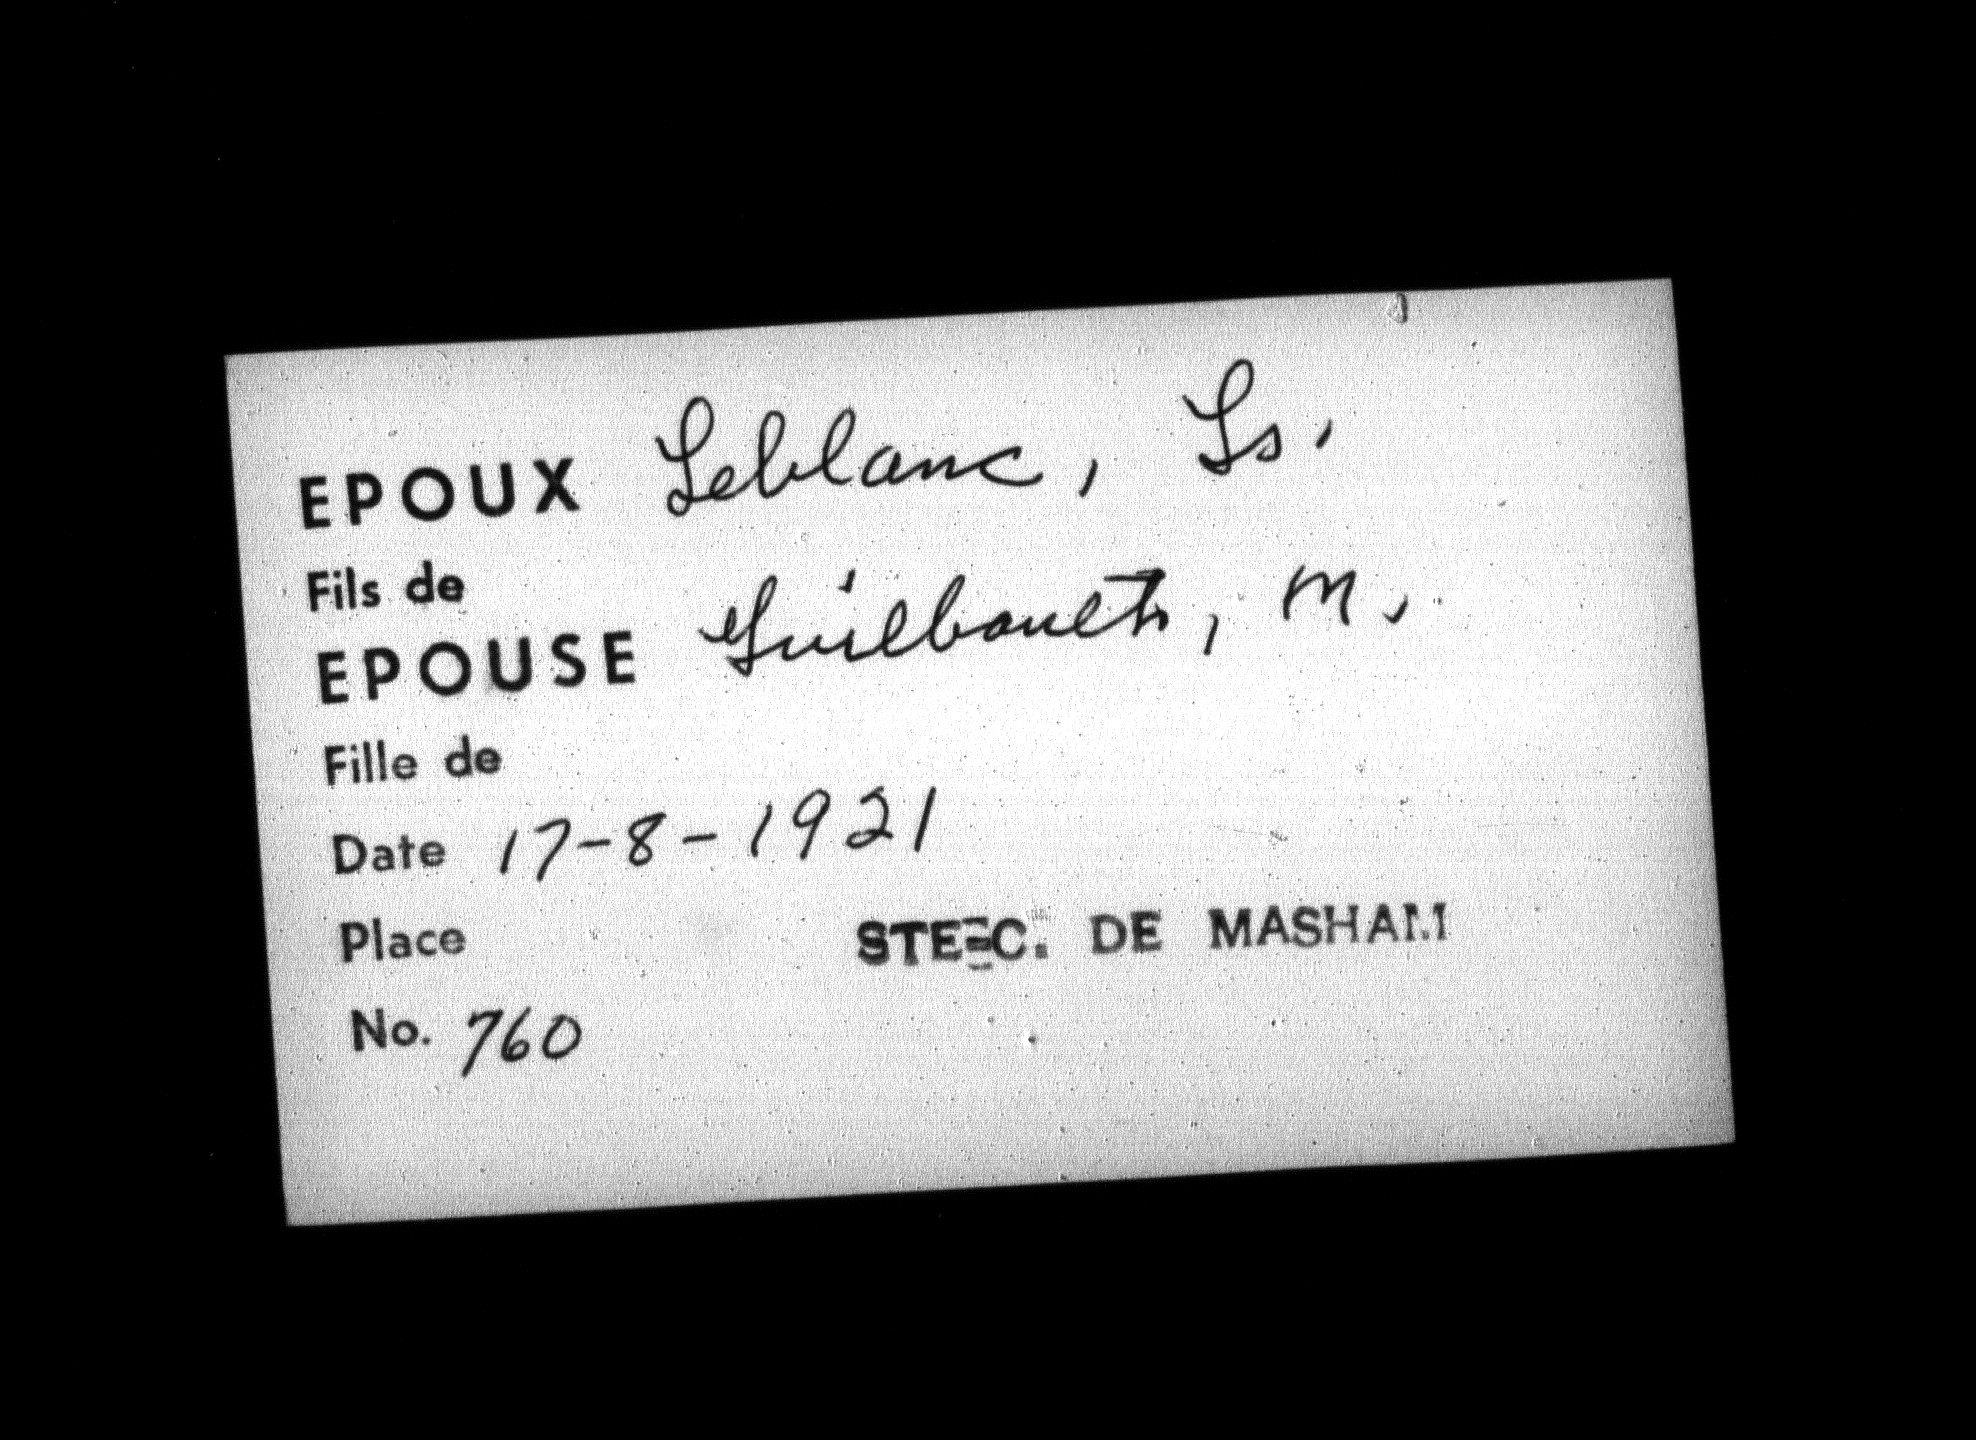 EPOUX Leblanc, Ls.
Fils de
EPOUSE Guilbault, M.
Fille de
Date 17-8-1921
Place STE=C. DE MASHAM
No. 760